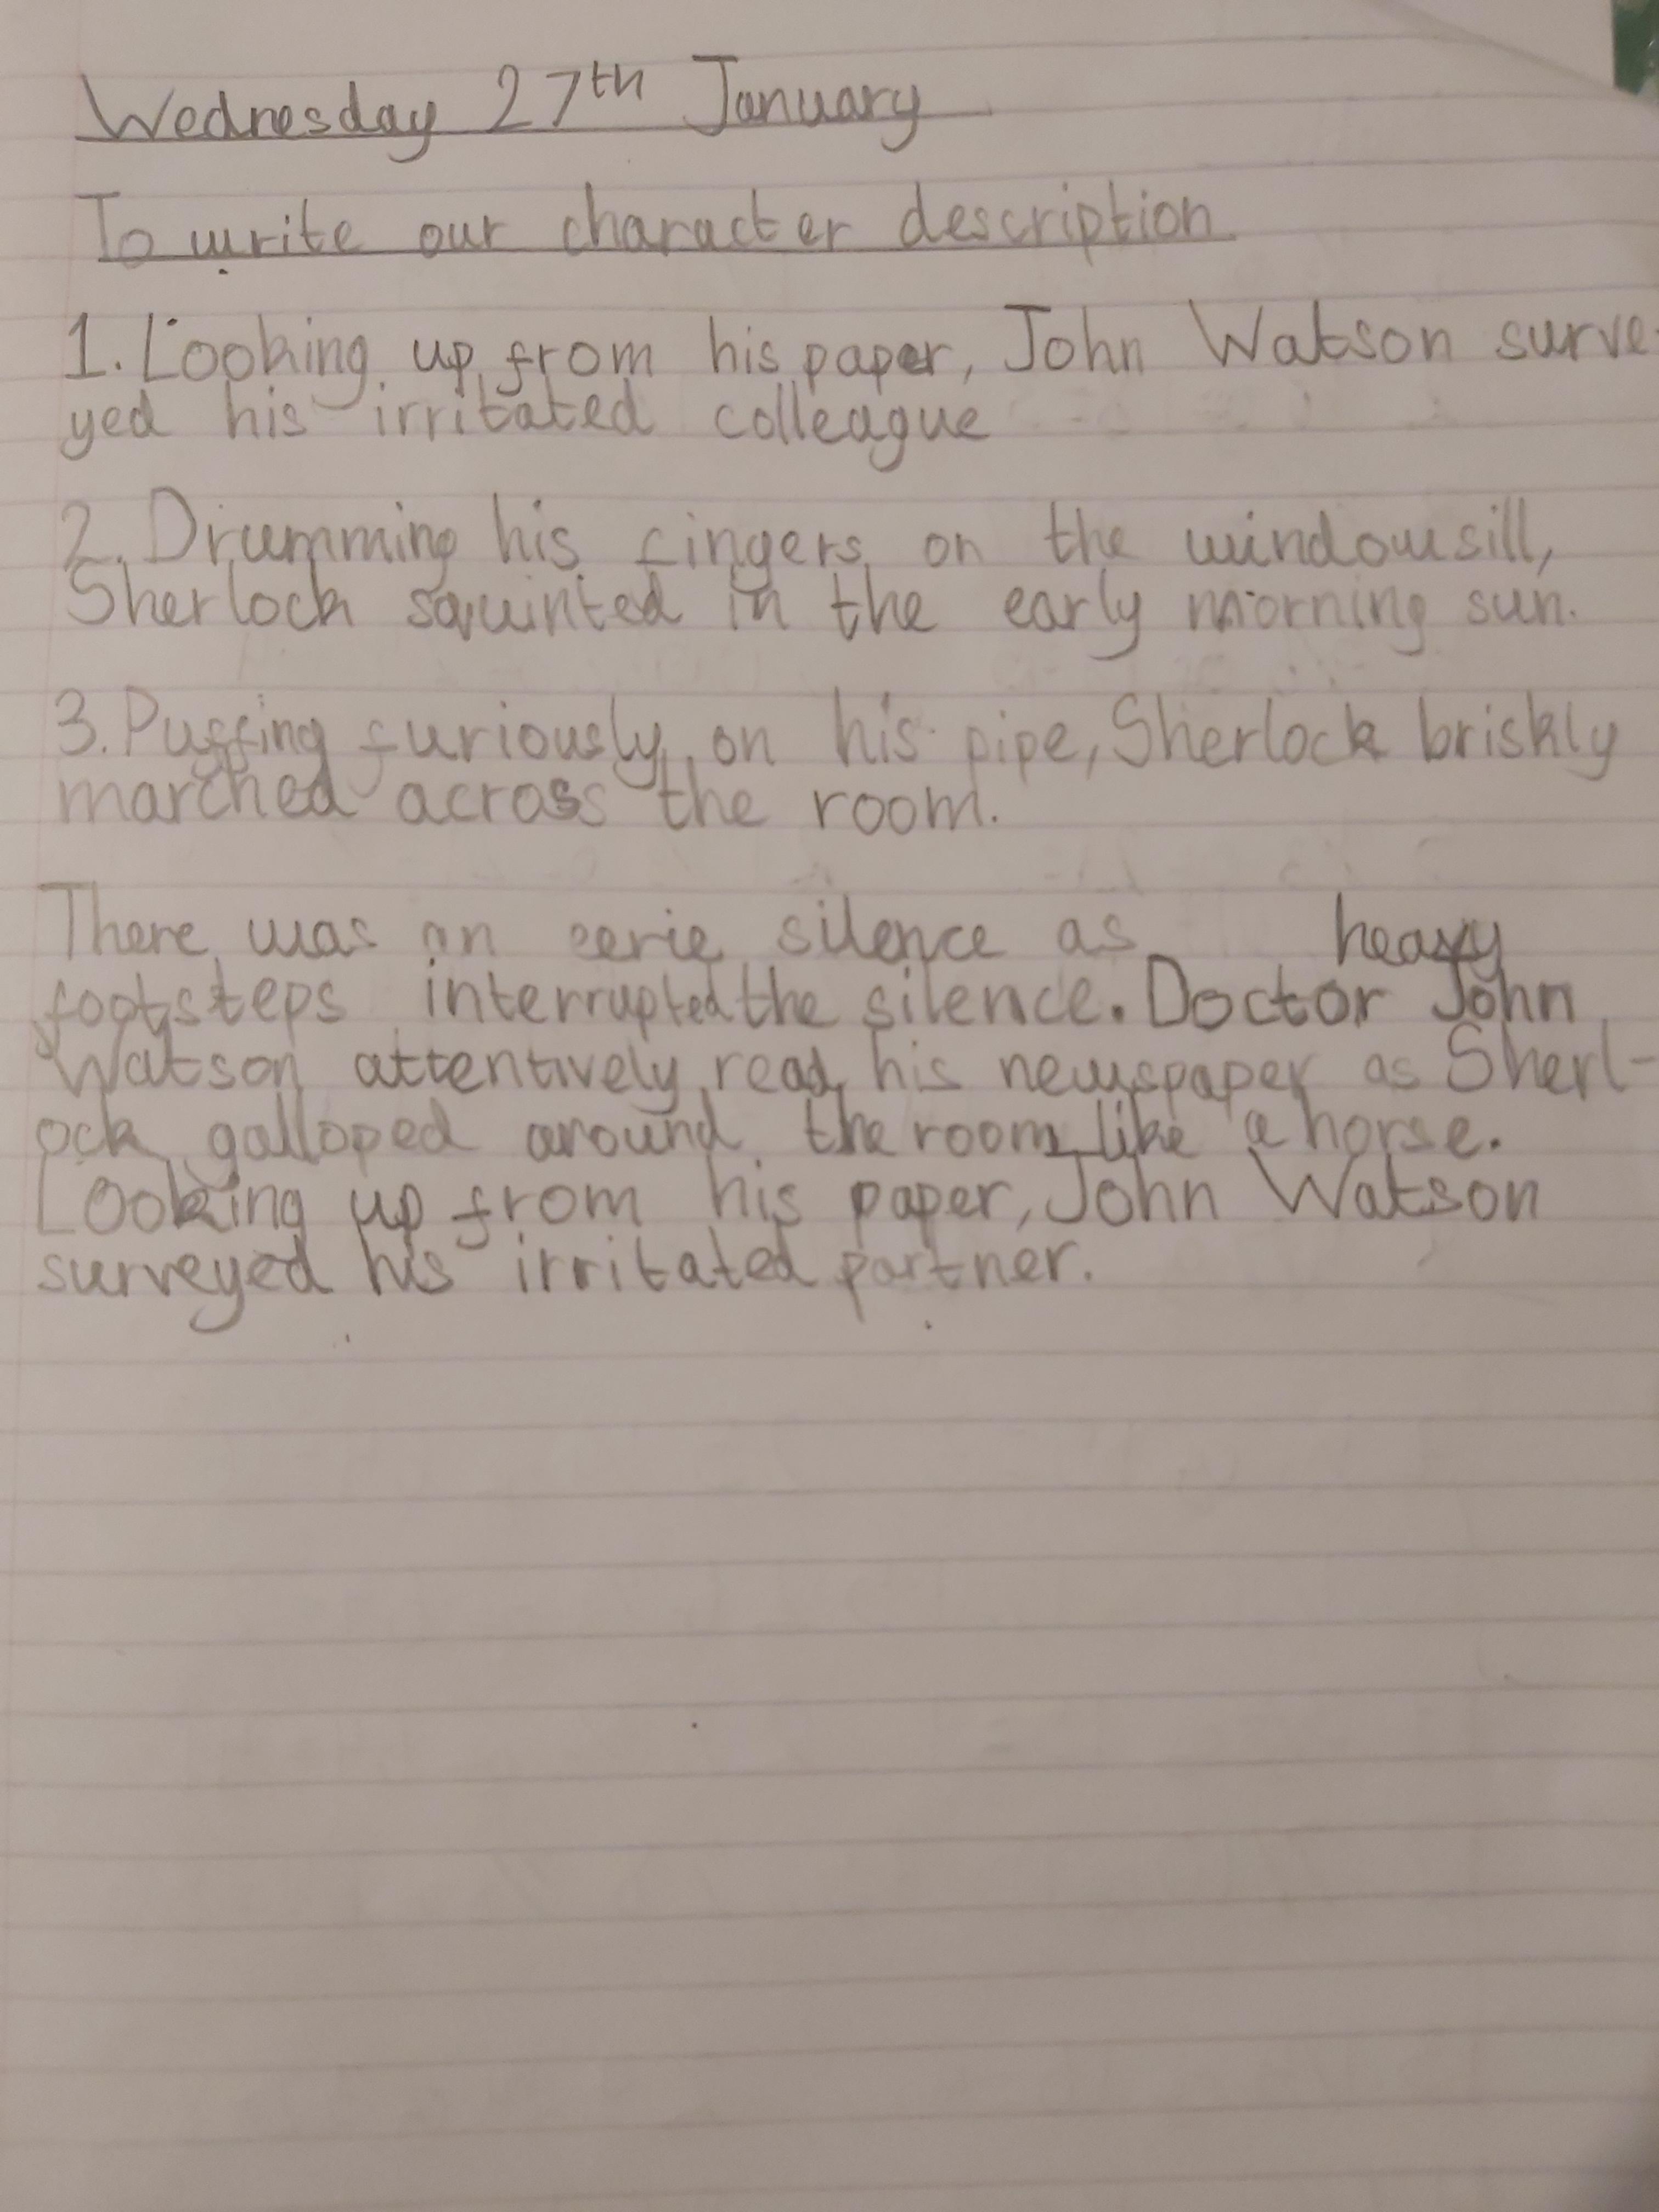 Wednesday 27th January
To write our character description
1. Looking up from his paper, John Watson surve-
yed his irritated colleague
2. Drumming his fingers on the windowsill,
Sherlock squinted in the early morning sun.
3. Puffing furiously on his pipe, Sherlock briskly
marched across the room.
There was an eerie silence as heavy
footsteps interrupted the silence. Doctor John
Watson attentively read his newspaper as Sherl-
ock galloped around the room like a horse.
Looking up from his paper, John Watson
surveyed his irritated partner.